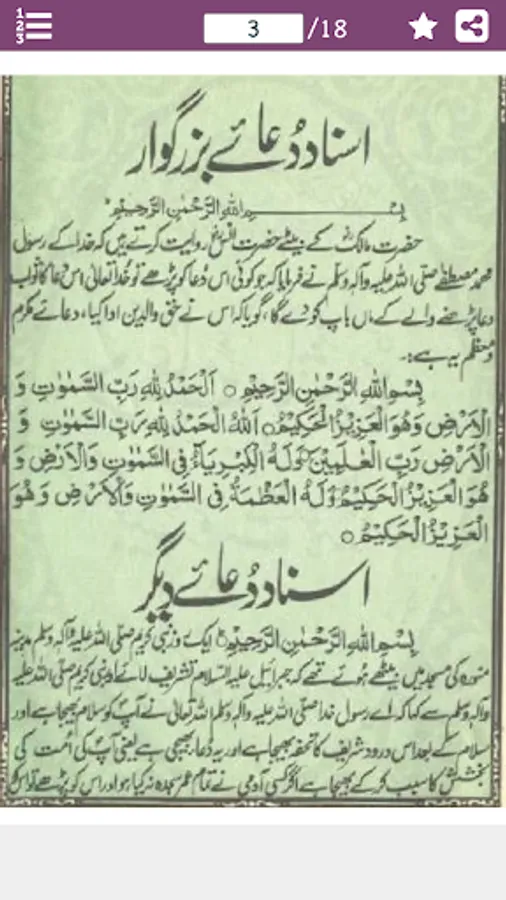 1
2
3
3 /18
اسناد دُعائے بزرگوار
بِسْمِ اللهِ الرَّحْمٰنِ الرَّحِيْمِ
حضرت مالکؓ کے بیٹے حضرت انسؓ روایت کرتے ہیں کہ خدا کے رسول
محمد مصطفےٰ صلی اللہ علیہ وآلہ وسلم نے فرمایا کہ جو کوئی اس دُعا کو پڑھے تو خُدا تعالیٰ اس دُعا کا ثواب
دعا پڑھنے والے کے ماں باپ کو دے گا، گویا کہ اس نے حق والدین ادا کیا، دعائے مکرم
و معظم یہ ہے:۔
بِسْمِ اللهِ الرَّحْمٰنِ الرَّحِيْمِ ○ اَلْحَمْدُ لِلّٰهِ رَبِّ السَّمٰوٰتِ وَ
الْاَرْضِ وَهُوَ الْعَزِيْزُ الْحَكِيْمُ ○ اَللهُ الْحَمْدُ لِلّٰهِ رَبِّ السَّمٰوٰتِ وَ
الْاَرْضِ رَبِّ الْعٰلَمِيْنَ ○ وَلَهُ الْكِبْرِيَآءُ فِى السَّمٰوٰتِ وَالْاَرْضِ وَ
هُوَ الْعَزِيْزُ الْحَكِيْمُ ○ وَلَهُ الْعَظَمَةُ فِى السَّمٰوٰتِ وَالْاَرْضِ وَهُوَ
الْعَزِيْزُ الْحَكِيْمُ ○
اسناد دُعائے دیگر
بِسْمِ اللهِ الرَّحْمٰنِ الرَّحِيْمِ ○ ایک روز نبی کریم صلی اللہ علیہ وآلہ وسلم مدینہ
منورہ کی مسجد میں بیٹھے ہوئے تھے کہ جبرائیل علیہ السلام تشریف لائے اور نبی کریم صلی اللہ علیہ
وآلہ وسلم سے کہا کہ اے رسول خدا صلی اللہ علیہ وآلہ وسلم اللہ تعالیٰ نے آپؐ کو سلام بھیجا ہے اور
سلام کے بعد اس درود شریف کا تحفہ بھیجا ہے اور یہ دُعا بھیجی ہے یعنی آپؐ کی اُمت کی
بخشش کا سبب کر کے بھیجا ہے اگر کسی آدمی نے تمام عمر سجدہ نہ کیا ہو اور اس کو پڑھے تو اس